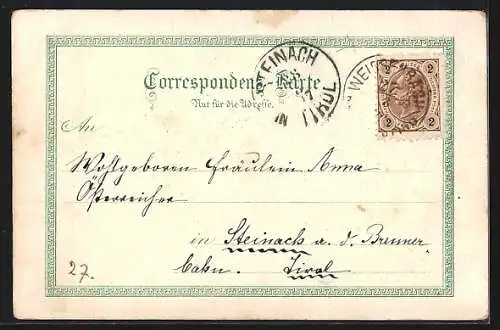 STEINACH
IN TIROL
2 2
Correspondenz-Karte
Nur für die Adresse.
An
Wohlgeboren Fräulein Anna
Österreicher
in Steinach a. d. Brenner
bahn. Tirol
27.